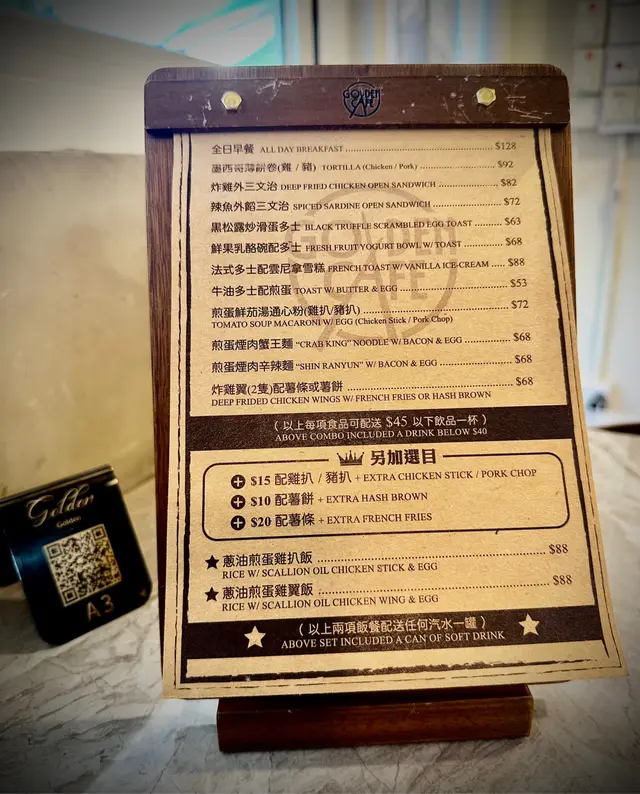 GOLDEN CAFE
全日早餐 ALL DAY BREAKFAST $128
墨西哥薄餅卷(雞 / 豬) TORTILLA (Chicken / Pork) $92
炸雞外三文治 DEEP FRIED CHICKEN OPEN SANDWICH $82
辣魚外餡三文治 SPICED SARDINE OPEN SANDWICH $72
黑松露炒滑蛋多士 BLACK TRUFFLE SCRAMBLED EGG TOAST $63
鮮果乳酪碗配多士 FRESH FRUIT YOGURT BOWL W/ TOAST $68
法式多士配雲尼拿雪糕 FRENCH TOAST W/ VANILLA ICE-CREAM $88
牛油多士配煎蛋 TOAST W/ BUTTER & EGG $53
煎蛋鮮茄湯通心粉(雞扒/豬扒) $72
TOMATO SOUP MACARONI W/ EGG (Chicken Stick / Pork Chop)
煎蛋煙肉蟹王麵 “CRAB KING” NOODLE W/ BACON & EGG $68
煎蛋煙肉辛辣麵 “SHIN RANYUN” W/ BACON & EGG $68
炸雞翼(2隻)配薯條或薯餅 $68
DEEP FRIDED CHICKEN WINGS W/ FRENCH FRIES OR HASH BROWN
GOLDEN CAFE
( 以上每項食品可配送 $45 以下飲品一杯 )
ABOVE COMBO INCLUDED A DRINK BELOW $40
另加選目
+ $15 配雞扒 / 豬扒 + EXTRA CHICKEN STICK / PORK CHOP
+ $10 配薯餅 + EXTRA HASH BROWN
+ $20 配薯條 + EXTRA FRENCH FRIES
★ 蔥油煎蛋雞扒飯 $88
RICE W/ SCALLION OIL CHICKEN STICK & EGG
★ 蔥油煎蛋雞翼飯 $88
RICE W/ SCALLION OIL CHICKEN WING & EGG
( 以上兩項飯餐配送任何汽水一罐 )
ABOVE SET INCLUDED A CAN OF SOFT DRINK
Golden
Golden
A3